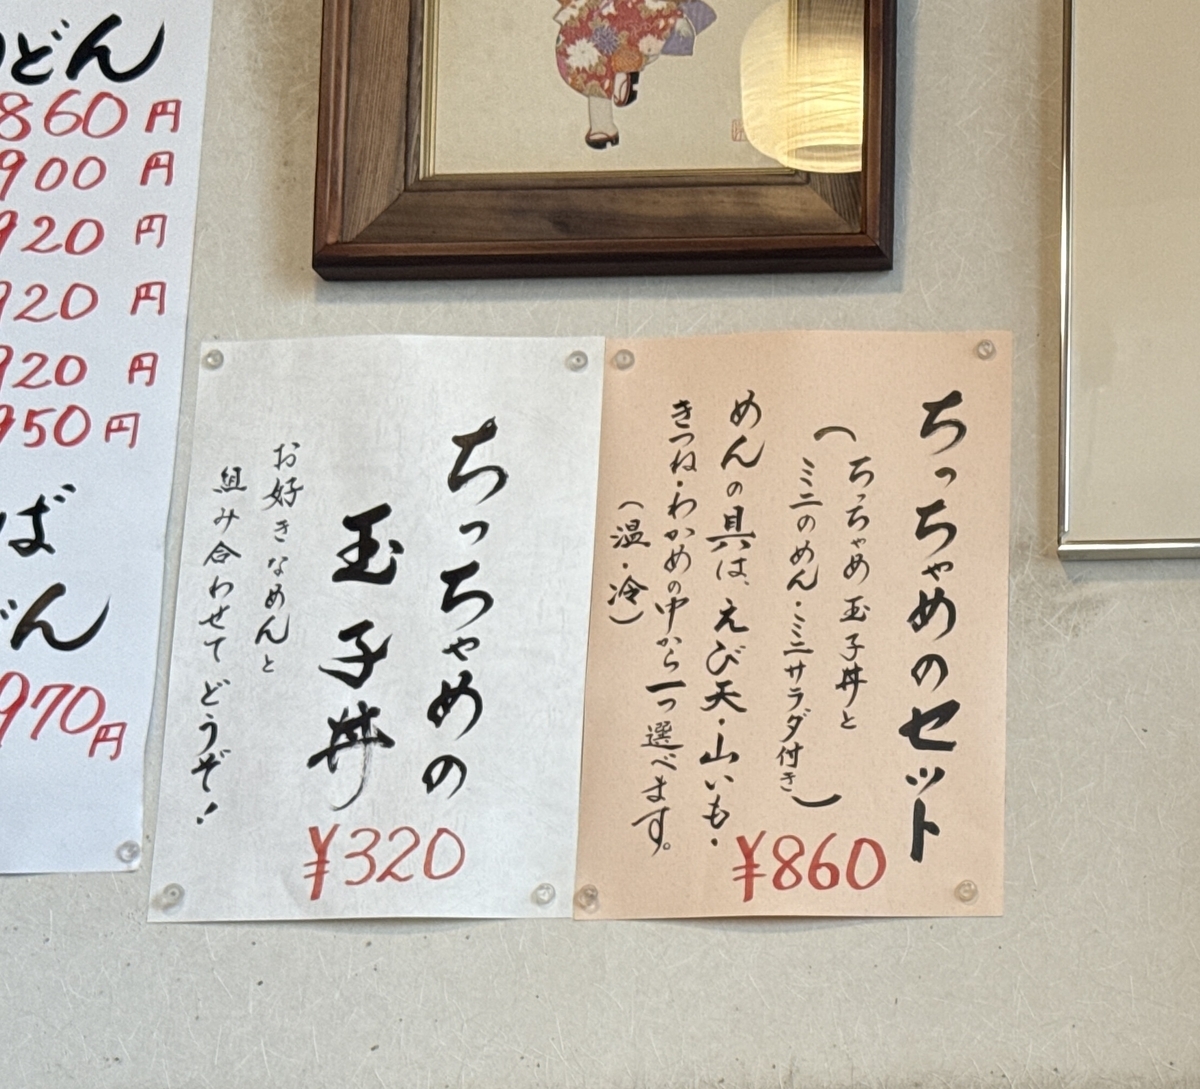 どん
860円
900円
920円
920円
920円
950円
ば
どん
970円
ちっちゃめのセット
(ちっちゃめ玉子丼と
ミニのめん・ミニサラダ付き)
めんの具は、えび天・山いも・
きつね・わかめの中から一つ選べます。
(温・冷)
¥860
ちっちゃめの
玉子丼
お好きなめんと
組み合わせてどうぞ!
¥320